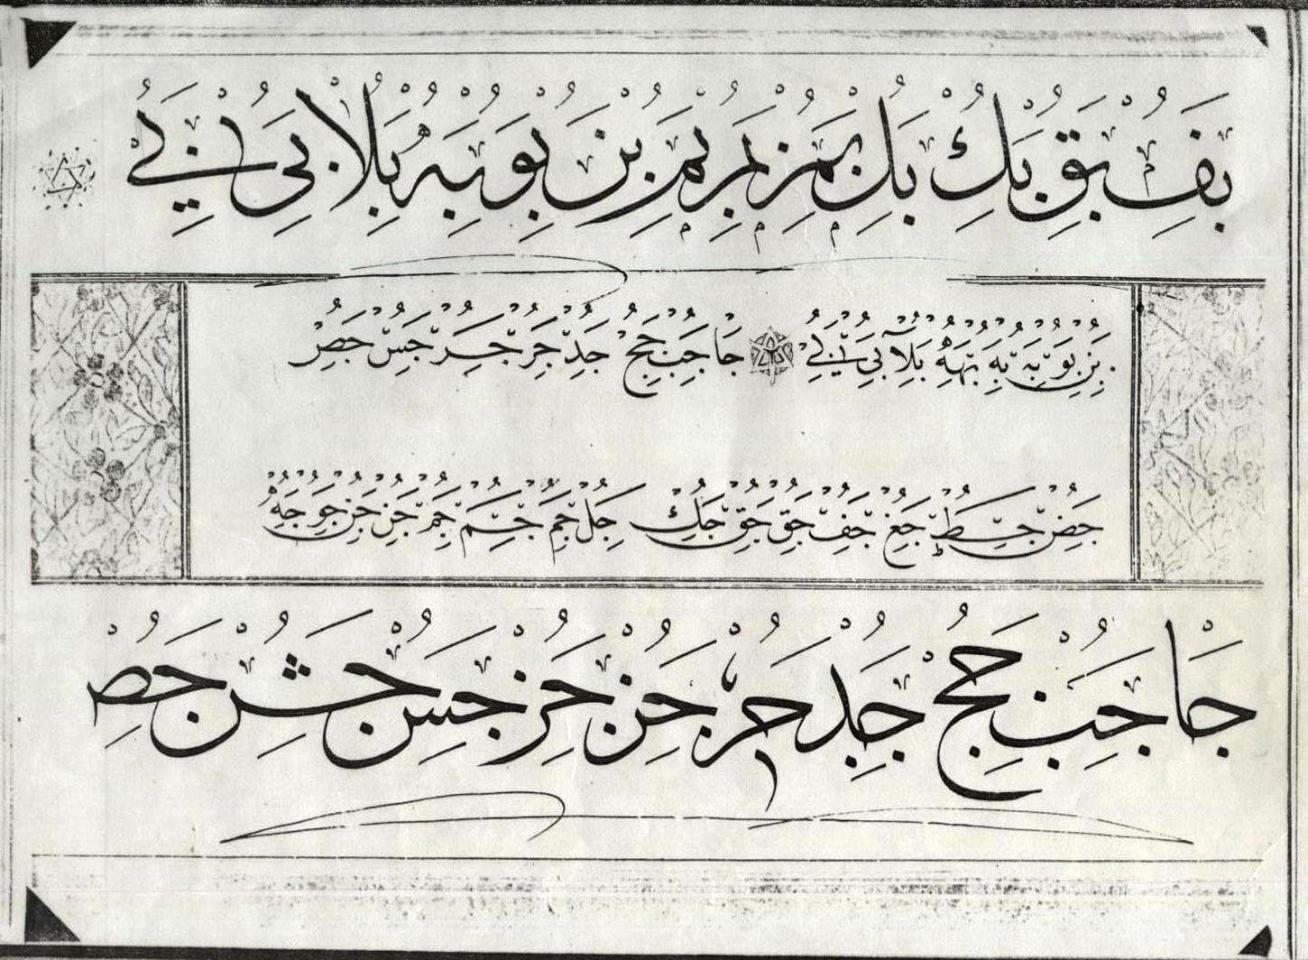 بف بق بك بل بم بم بم بن بو به بلا بى بى
بن بن بو به به بهه بلا بى بى جا جب جج جد جر جس جس جص
جض جط جع جف جق جق جك جل جم جم جم جن جن جو جه
جا جب جج جد جر جن جر جس جش جص